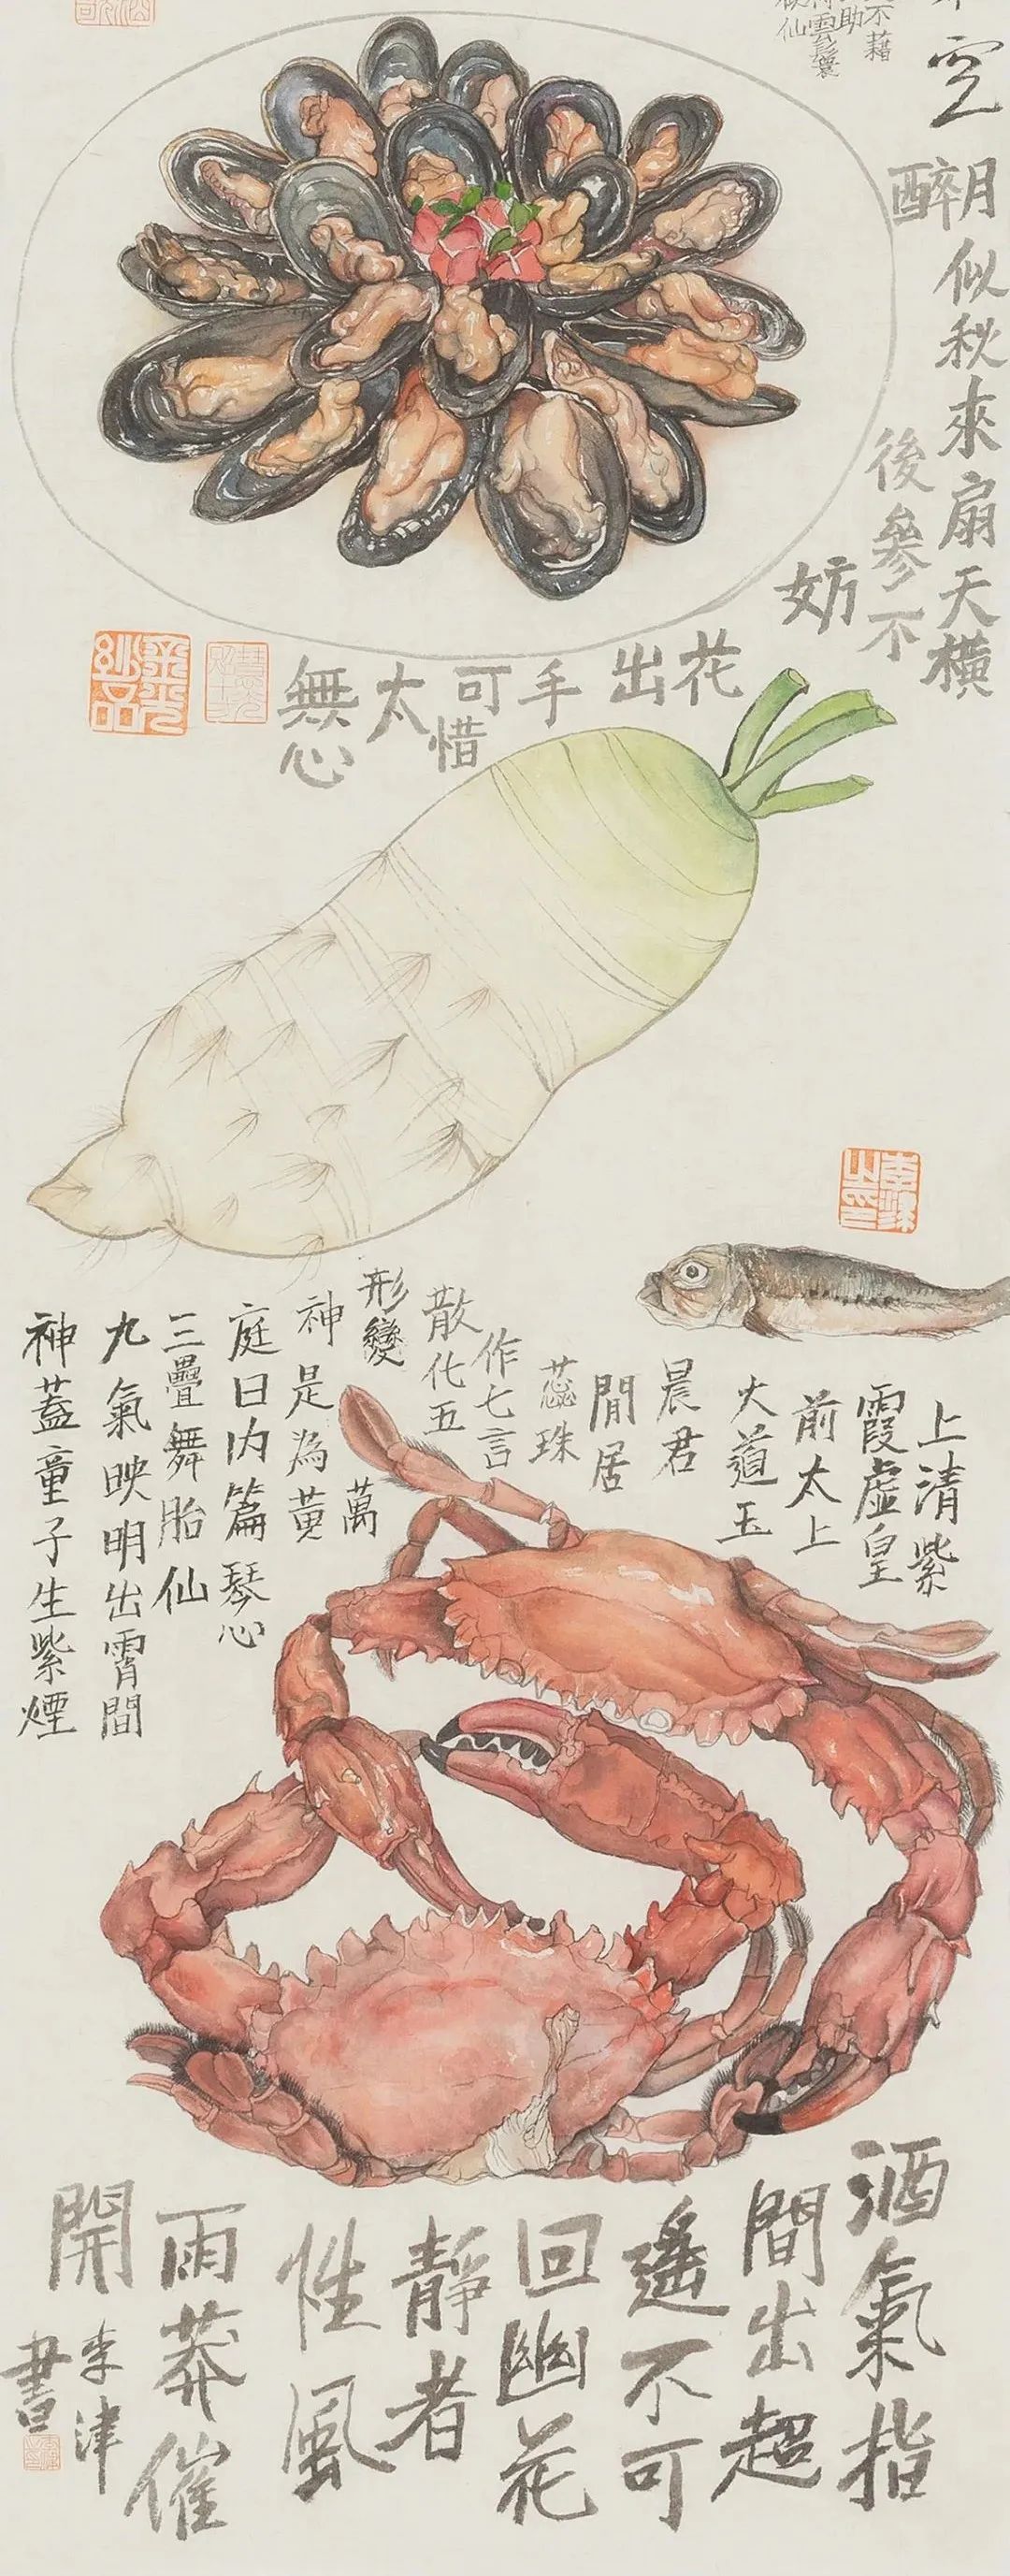 不藉
助
雲鬟
似仙
空
月似秋來扇天橫
醉
後參不
妨
花
出
手
可惜
太
無心
上清紫
霞虛皇
前太上
大道玉
晨君
閒居
蕊珠
作七言
散化五
形變
萬
神是為黃
庭曰內篇琴心
三疊舞胎仙
九氣映明出霄間
神蓋童子生紫煙
酒氣指
間出超
遙不可
回幽花
靜者
性風
雨莽催
開
李津
書